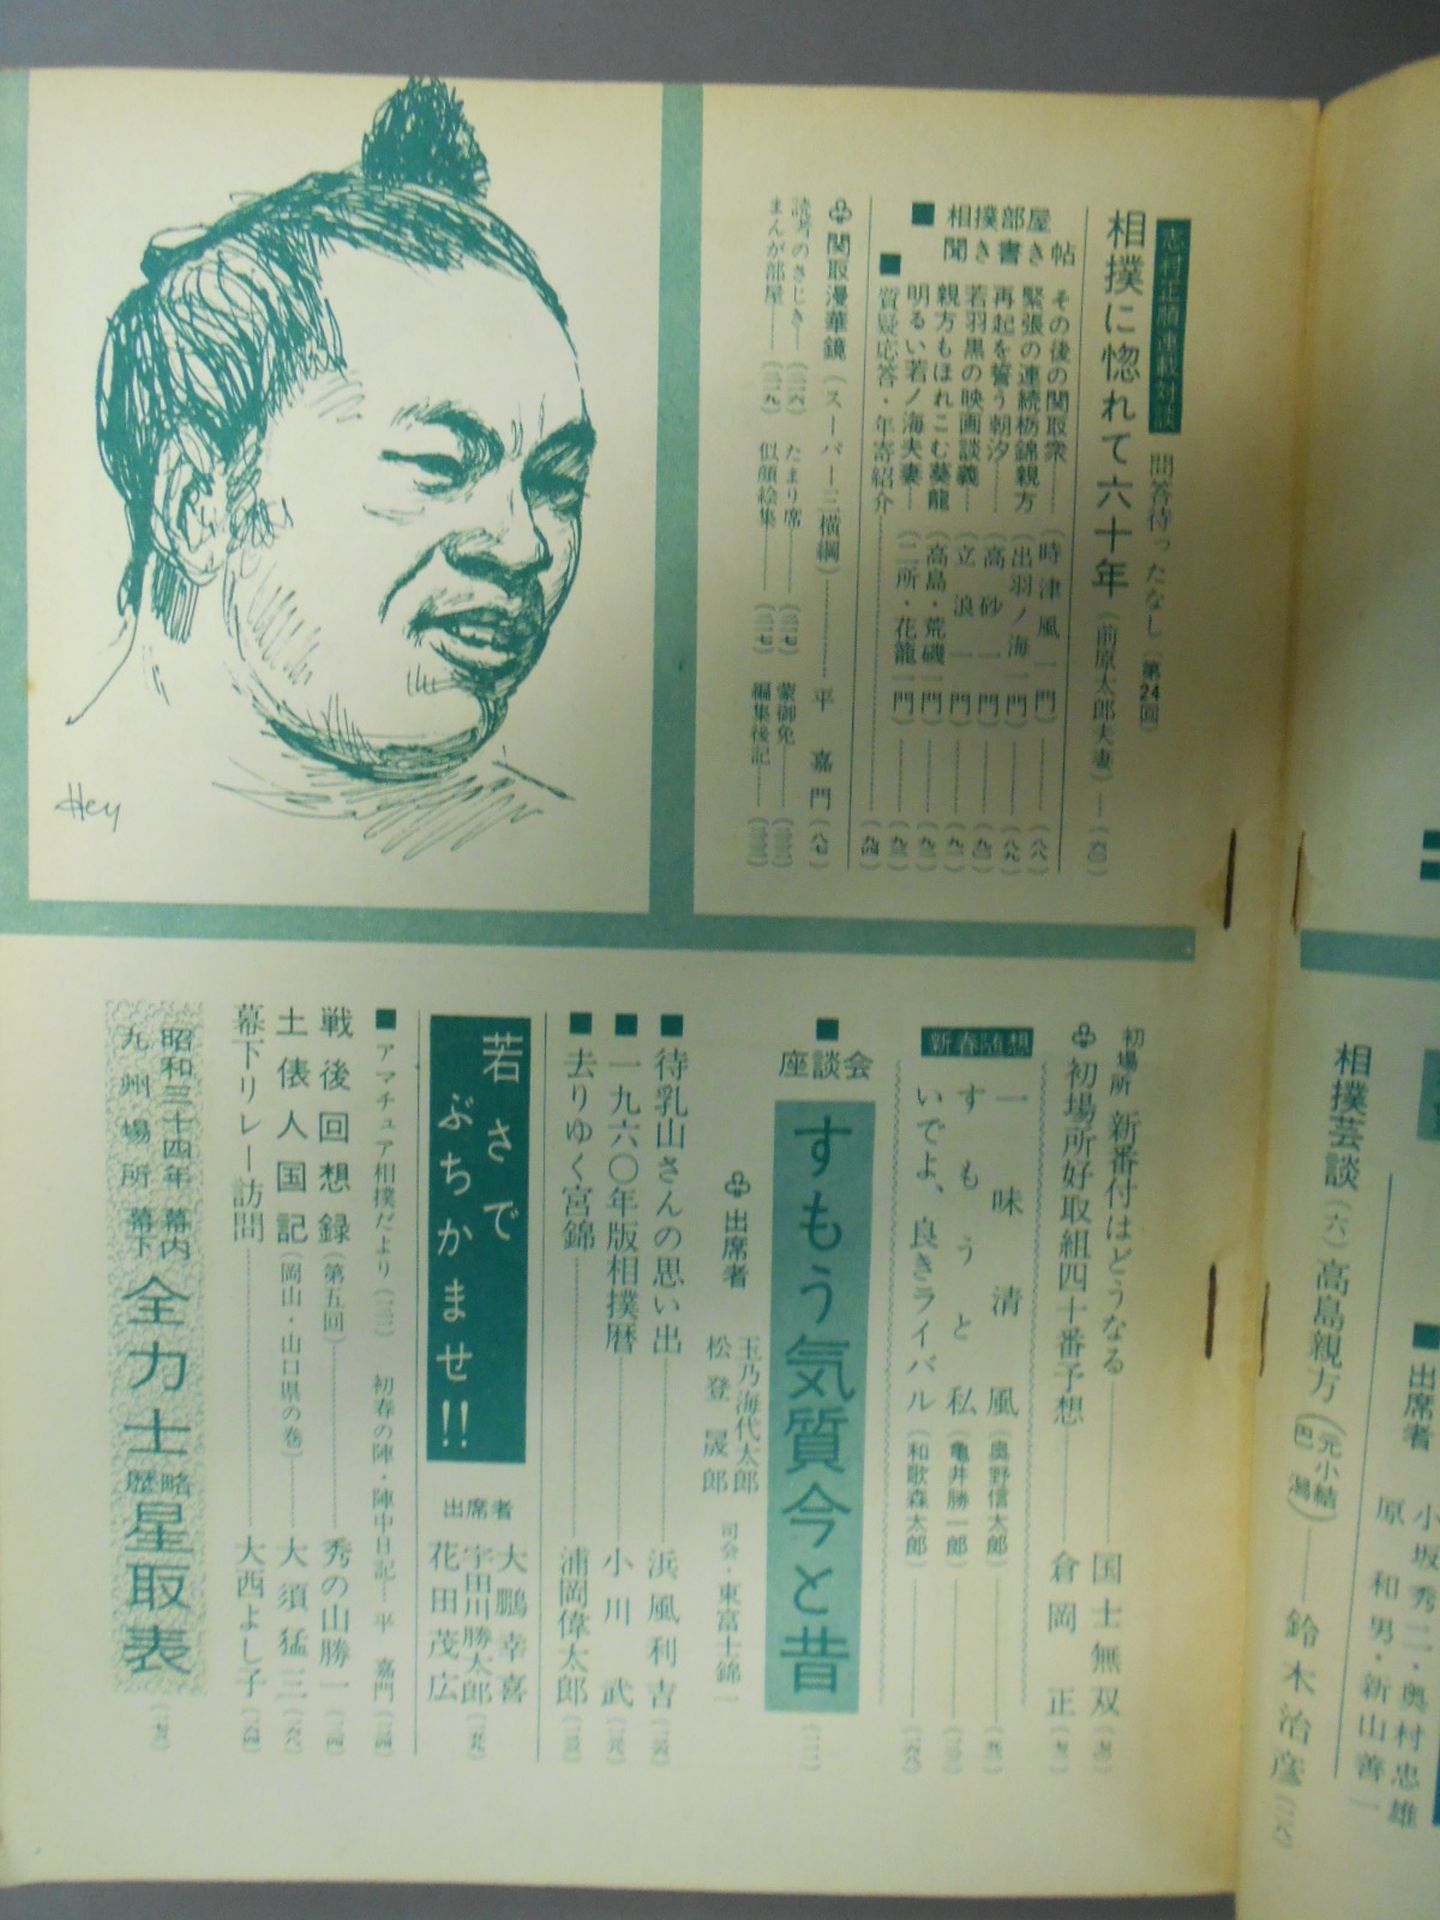 相撲芸談(六)高島親方(元小結巴潟)――鈴木治彦
出席者 小坂秀二・奥村忠雄
原和男・新山善一
志村正順連載対談 問答待ったなし(第24回)
相撲に惚れて六十年(前原太郎夫妻)…(六〇)
■相撲部屋聞き書き帖
その後の関取衆……(時津風一門)……(八八)
緊張の連続栃錦親方(出羽ノ海一門)……(八九)
再起を誓う朝汐……(高砂一門)……(九〇)
若羽黒の映画談義…(立浪一門)……(九一)
親方もほれこむ葵龍(高島・荒磯一門)……(九二)
明るい若ノ海夫妻…(二所・花籠一門)……(九三)
■質疑応答・年寄紹介……(九四)
関取漫華鏡(スーパー三横綱)……平嘉門(八七)
読者のさじき…(二二六) たまり席……(二二七) 蒙御免……
まんが部屋……(二二九) 似顔絵集――(二一七) 編集後記――
Hey
初場所 新番付はどうなる――国士無双
初場所好取組四十番予想――倉岡正
新春随想
一味清風(奥野信太郎)
すもうと私(亀井勝一郎)
いでよ、良きライバル(和歌森太郎)
■座談会 すもう気質今と昔
出席者 玉乃海代太郎
松登晟郎 司会・東富士錦一
■待乳山さんの思い出……浜風利吉
■一九六〇年版相撲暦……小川武
■去りゆく宮錦……浦岡偉太郎
若さで
ぶちかませ!!
出席者 大鵬幸喜
宇田川勝太郎
花田茂広
■アマチュア相撲だより(三三) 初春の陣・陣中日記…平嘉門
戦後回想録(第五回)……秀の山勝一
土俵人国記(岡山・山口県の巻)……大須猛三
幕下リレー訪問……大西よし子
昭和三十四年九州場所 幕内幕下 全力士略歴星取表